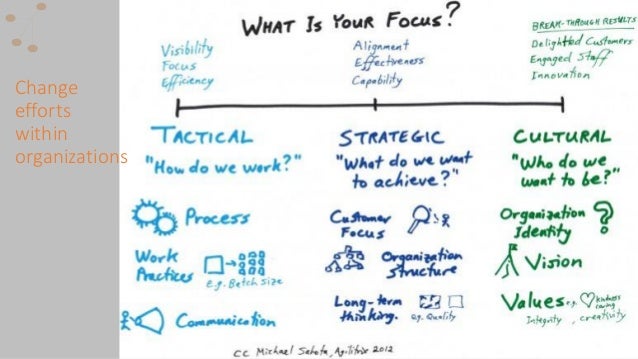 Change
efforts
within
organizations
WHAT IS YOUR FOCUS?
Visibility
Focus
Efficiency
Alignment
Effectiveness
Capability
BREAK-THROUGH RESULTS
Delighted Customers
Engaged Staff
Innovation
TACTICAL
"How do we work?"
Process
Work
Practices
e.g. Batch size
Communication
STRATEGIC
"What do we want
to achieve?"
Customer
Focus
Organization
Structure
Long-term
thinking.
eg. Quality
CULTURAL
"Who do we
want to be?"
Organization
Identity
?
Vision
Values e.g. kindness
caring
Integrity, creativity
CC Michael Sahota, Agilitrix 2012